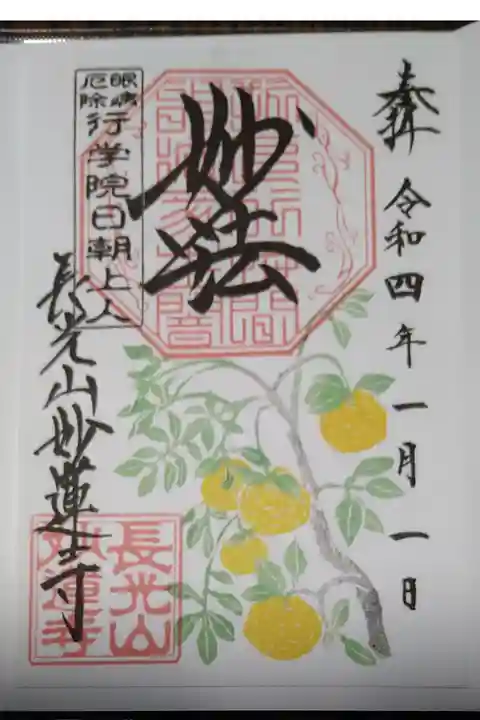 奉拝 令和四年一月一日
妙法
眼病
厄除
行学院日朝上人
長光山妙蓮寺
長光山
妙蓮寺